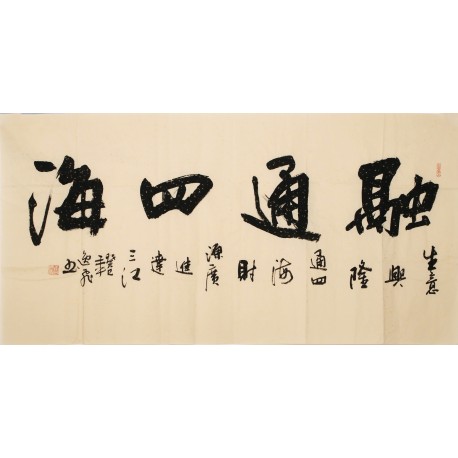 融通四海
生意興隆通四海財源廣進達三江
逸飛书